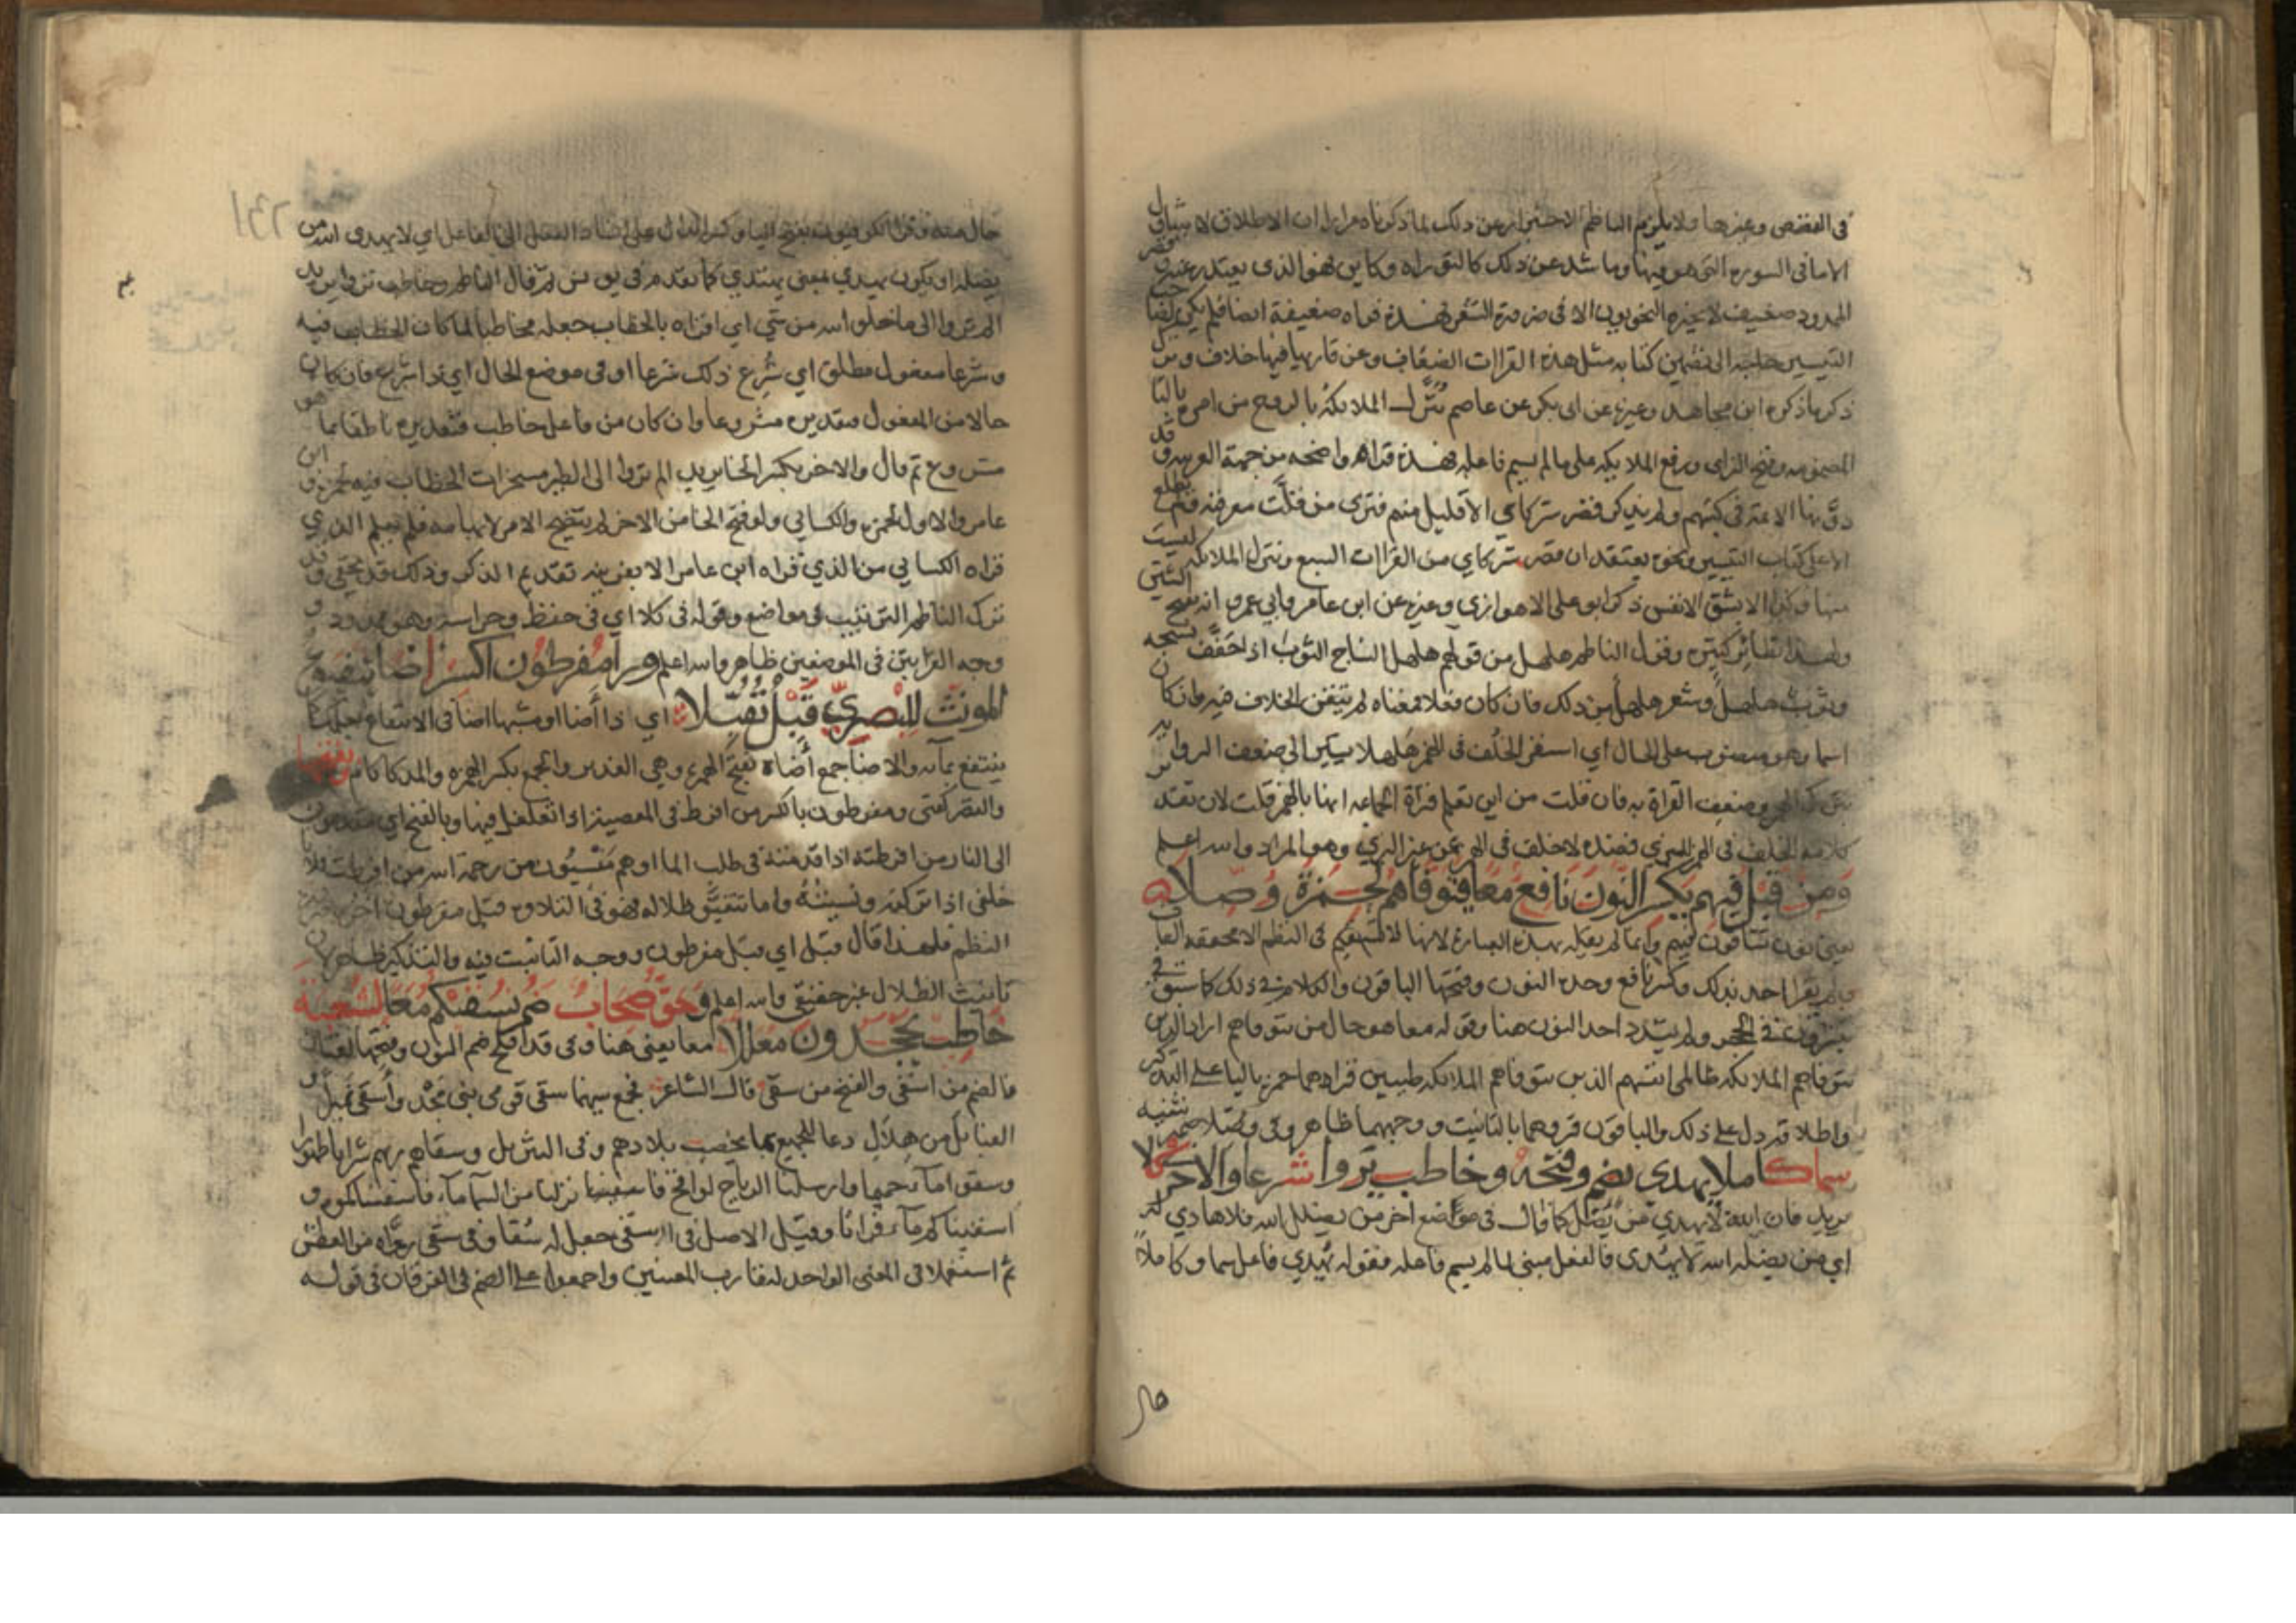 في القصص وغيرها ولا يلزم الناظم الاحتراز عن ذلك لما ذكرناه مرارا ان الاطلاق لا يتناول
الا ما في السورة التي هو فيها وما شد عن ذلك كالتوراة وكاين فهو الذي يعتذر عنه وقصر
الممدود ضعيف لا يجيزه النحويون الا في ضرورة الشعر فهذه قراة ضعيفة ايضا فلم يكن لصاحب
التيسير حاجة الى تضمين كتابه مثل هذه القراات الضعاف وعن قاريها فيها خلاف وترك
ذكر ما ذكره ابن مجاهد وغيره عن ابي بكر عن عاصم تنزل الملايكة بالروح من امره بالتا
المضمومه وفتح الزاي ورفع الملايكه على ما لم يسم فاعله فهذه قراه واضحه من جهة العربيه وقد
دونها الائمه في كتبهم ولم يذكر قصر شركاي الا قليل منهم فترى من قلت معرفته ولم يطلع
الا على كتاب التيسير ونحوه يعتقد ان قصر شركاي من القراات السبع وتنزل الملائكة ليست
منها وكذا الا بشق الانفس ذكر ابو علي الاهوازي وغيره عن ابن عامر وابي عمرو انه بفتح الشين
ولهذا نظائر كثيره وقول الناظم هلهل من قولهم هلهل النساج الثوب اذا خفف نسجه
وثوب هلهل وشعر هلهل من ذلك فان كان فعلا فمعناه لم يتيقن الخلاف فيه وان كان
اسما وهو منصوب على الحال اي استقر الخلف في الهمز هلهلا يشير الى ضعف الرواية
بترك الهمز وضعف القراة به فان قلت من اين تعلم قراة الجماعه انها بالهمز قلت لان تقدير
كلامه الخلف في الهمز للبزي فضده لا خلف في الهمز عن غير البزي وهو المراد والله اعلم
ومن قبل فيهم يكسر النون نافع معا يتوفاهم لحمزة وصلا
يعني نون تشاقون فيهم وانما لم يقله بهذه العبارة لانها لا تستقيم في النظم الا مخففة القاف
ولم يقرا احد بذلك وكسر نافع وحده النون وفتحها الباقون والكلام في ذلك كما سبق في
تبشرون في الحجر ولم يشدد احد النون هنا وقوله معا هو حال من يتوفاهم اراد الذين
يتوفاهم الملائكه ظالمي انفسهم الذين يتوفاهم الملائكه طيبين قراهما حمزة باليا على التذكير
واطلاقه دل على ذلك والباقون قروهما بالتانيث ووجههما ظاهر وفي وصلا ضمير تثنيه
سما كاملا يهدي بضم وفتحه وخاطب تروا شرعا والاخر في كلا
يريد فان الله لا يهدي من يضل كما قال في مواضع اخر من يضلل الله فلا هادي له
اي من يضله الله لا يهدى فالفعل مبني لما لم يسم فاعله فقوله يهدي فاعل سما وكاملا
حال
حال منه وقرا الكوفيون بفتح اليا وكسر الدال على اسناد الفعل الى الفاعل اي لا يهدي الله من
يضله او يكون يهدي بمعنى يهتدي كما تقدم في يونس ثم قال الناظم وخاطب تروا يريد
الم تروا الى ما خلق الله من شي اي اقراه بالخطاب جعله مخاطبا لما كان الخطاب فيه
وشرعا مفعول مطلق اي شرع ذلك شرعا او في موضع الحال اي ذا شرع فان كان
حالا من المفعول فتقديره مشروعا وان كان من فاعل خاطب فتقديره ناطقا بما هو
مشروع ثم قال والاخر بكسر الخا يريد الم تروا الى الطير مسخرات الخطاب فيه لحمزة وابن
عامر والاول لحمزه والكسائي ولو فتح الخا من الاخر لم يتضح الامر لابهامه فلم يعلم الذي
قراه الكسايي من الذي قراه ابن عامر الا بقرينه تقديم الذكر وذلك قد يخفى وقد
ترك الناظم الترتيب في مواضع وقوله في كلا اي في حفظ وحراسه وهو ممدود و
وجه القرايتين في الموضعين ظاهر والله اعلم ورا مفرطون اكسر اضا يتفيؤ
المونث للبصري قبل تقبلا اي ذا أضا او مشبها اضا في الانتفاع بعلمك
ينتفع بمآئه والاضا جمع أضاه بفتح الهمزه وهي الغدير والجمع بكسر الهمزه والمد كاكام وبفتحها
والقصر كفتى ومفرطون بالكسر من افرط في المعصيه اذا تغلغل فيها وبالفتح اي مقدمون
الى النار من افرطته اذا قدمته في طلب الما او هم منسيون من رحمة الله من افرطت فلانا
خلفي اذا تركته ونسيته واما تتفيؤ ظلاله فهو في التلاوه قبل مفرطون
النظم فلهذا قال قبل اي قبل مفرطون ووجه التانيث فيه والتذكير ظاهر لان
تانيث الظلال غير حقيقي والله اعلم وحق صحاب ضم نسقيكم معا لشعبة
خاطب يجحدون معللا معا يعني هنا وفي قد افلح ضم النون وفتحها لغتان
فالضم من اسقى والفتح من سقى قال الشاعر فجمع بينهما سقى قومي بني مجد وأسقى نميرا و
القبائل من هلال دعا للجميع بما يخصب بلادهم وفي التنزيل وسقاهم ربهم شرابا طهورا
وسقوا ماء حميما وارسلنا الرياح لواقح فانزلنا من السماء ماء فاسقيناكموه و
اسقيناكم ماء فراتا وقيل الاصل في اسقى جعل له سقيا وفي سقى رواه من العطش
ثم استعملا في المعنى الواحد لتقارب المعنيين واجمعوا على الضم في الفرقان في قوله